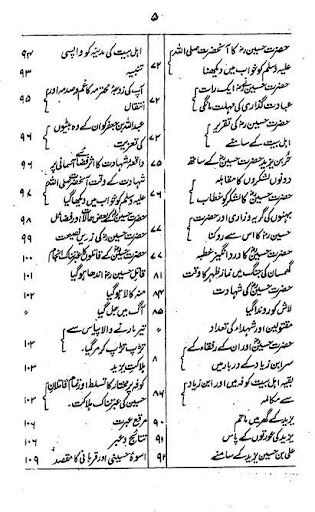 ۵
حضرت حسینؓ کا آنحضرت صلی اللہ
علیہ وسلم کو خواب میں دیکھنا ۷۲
حضرت حسینؓ کو ایک رات
عبادت گذاری کی مہلت مانگی ۷۲
حضرت حسینؓ کی تقریر
اہل بیت کے سامنے ۷۳
حر بن یزید حضرت حسینؓ کے ساتھ ۷۵
دونوں لشکروں کا مقابلہ
حضرت حسینؓ کا لشکر کو خطاب ۷۶
بہنوں کی گریہ و زاری اور حضرت
حسینؓ کا اس سے روکنا
حضرت حسینؓ کا درد انگیز خطبہ ۷۷
گھمسان کی جنگ میں نماز ظہر کا وقت ۸۱
حضرت حسینؓ کی شہادت ۸۴
لاش کو روندا گیا ۸۵
مقتولین اور شہداء کی تعداد
حضرت حسینؓ اور ان کے رفقاء کے
سر ابن زیاد کے دربار میں
بقیہ اہل بیت کوفہ میں اور ابن زیاد
سے مکالمہ ۸۶
یزید کے گھر میں ماتم ۹۰
یزید کی عورتوں کے پاس ۹۱
علی بن حسین یزید کے سامنے ۹۲
اہل بیت کی مدینہ کو واپسی ۹۴
تنبیہ ۹۳
آپ کی زوجہ محترمہ کا غم و صدمہ اور
انتقال ۹۵
عبداللہ بن جعفر کو ان کے دو بیٹوں
کی تعزیت ۹۶
واقعہ شہادت کا اثر فضائے آسمانی پر ۹۶
شہادت کے وقت آنحضرت صلی اللہ
علیہ وسلم کو خواب میں دیکھا گیا ۹۷
حضرت حسینؓ کے بعض حالات اور فضائل ۹۸
حضرت حسینؓ کی زریں نصیحت ۹۹
حضرت حسینؓ کے قاتلوں کا عبرتناک انجام ۱۰۰
قاتل حسینؓ اندھا ہو گیا ۱۰۱
منہ کالا ہو گیا ۱۰۲
آگ میں جل گیا
تیر مارنے والا پیاس سے
تڑپ تڑپ کر مر گیا ۱۰۳
ہلاکت یزید ۱۰۳
کوفہ پر مختار کا تسلط اور تمام قاتلان
حسینؓ کی عبرتناک ہلاکت ۱۰۳
مرقع عبرت ۱۰۶
نتائج و عبر ۱۰۶
اسوۂ حسینی اور قربانی کا مقصد ۱۰۹